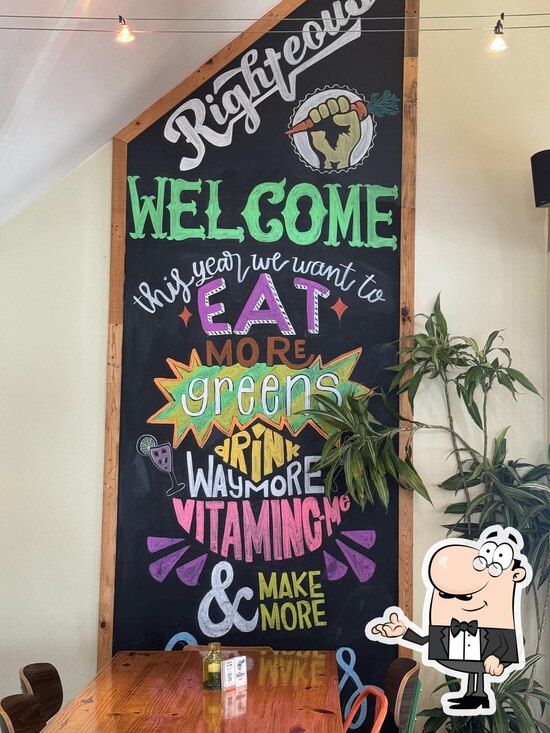 Righteous
WELCOME
this year we want to
EAT
MORE
greens
DRINK
WAY MORE
VITAMIN C-Me
& MAKE
MORE